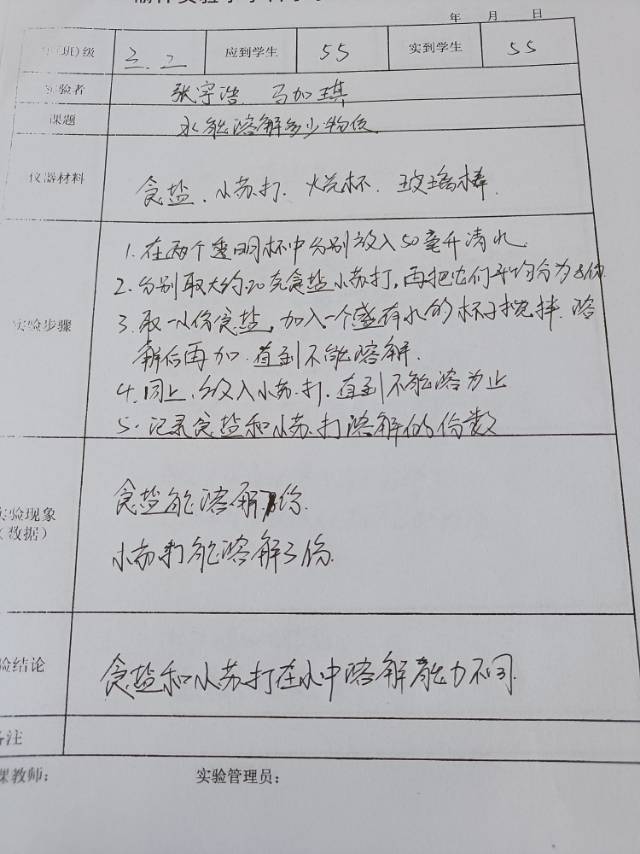 年 月 日
(班)级 三.2 应到学生 55 实到学生 55
实验者 张宇浩 马加琪
课题 水能溶解多少物质
仪器材料 食盐、小苏打、烧杯、玻璃棒
1. 在两个透明杯中分别放入50毫升清水
2. 分别取大约20克食盐小苏打,再把它们平均分为8份
实验步骤 3. 取一小份食盐,加入一个盛有水的杯子搅拌.溶
解后再加.直到不能溶解.
4. 同上.放入小苏打.直到不能溶为止
5. 记录食盐和小苏打溶解的份数
实验现象
(数据)
食盐能溶解 份.
小苏打能溶解3份.
验结论 食盐和小苏打在水中溶解能力不同.
备注
课教师: 实验管理员: